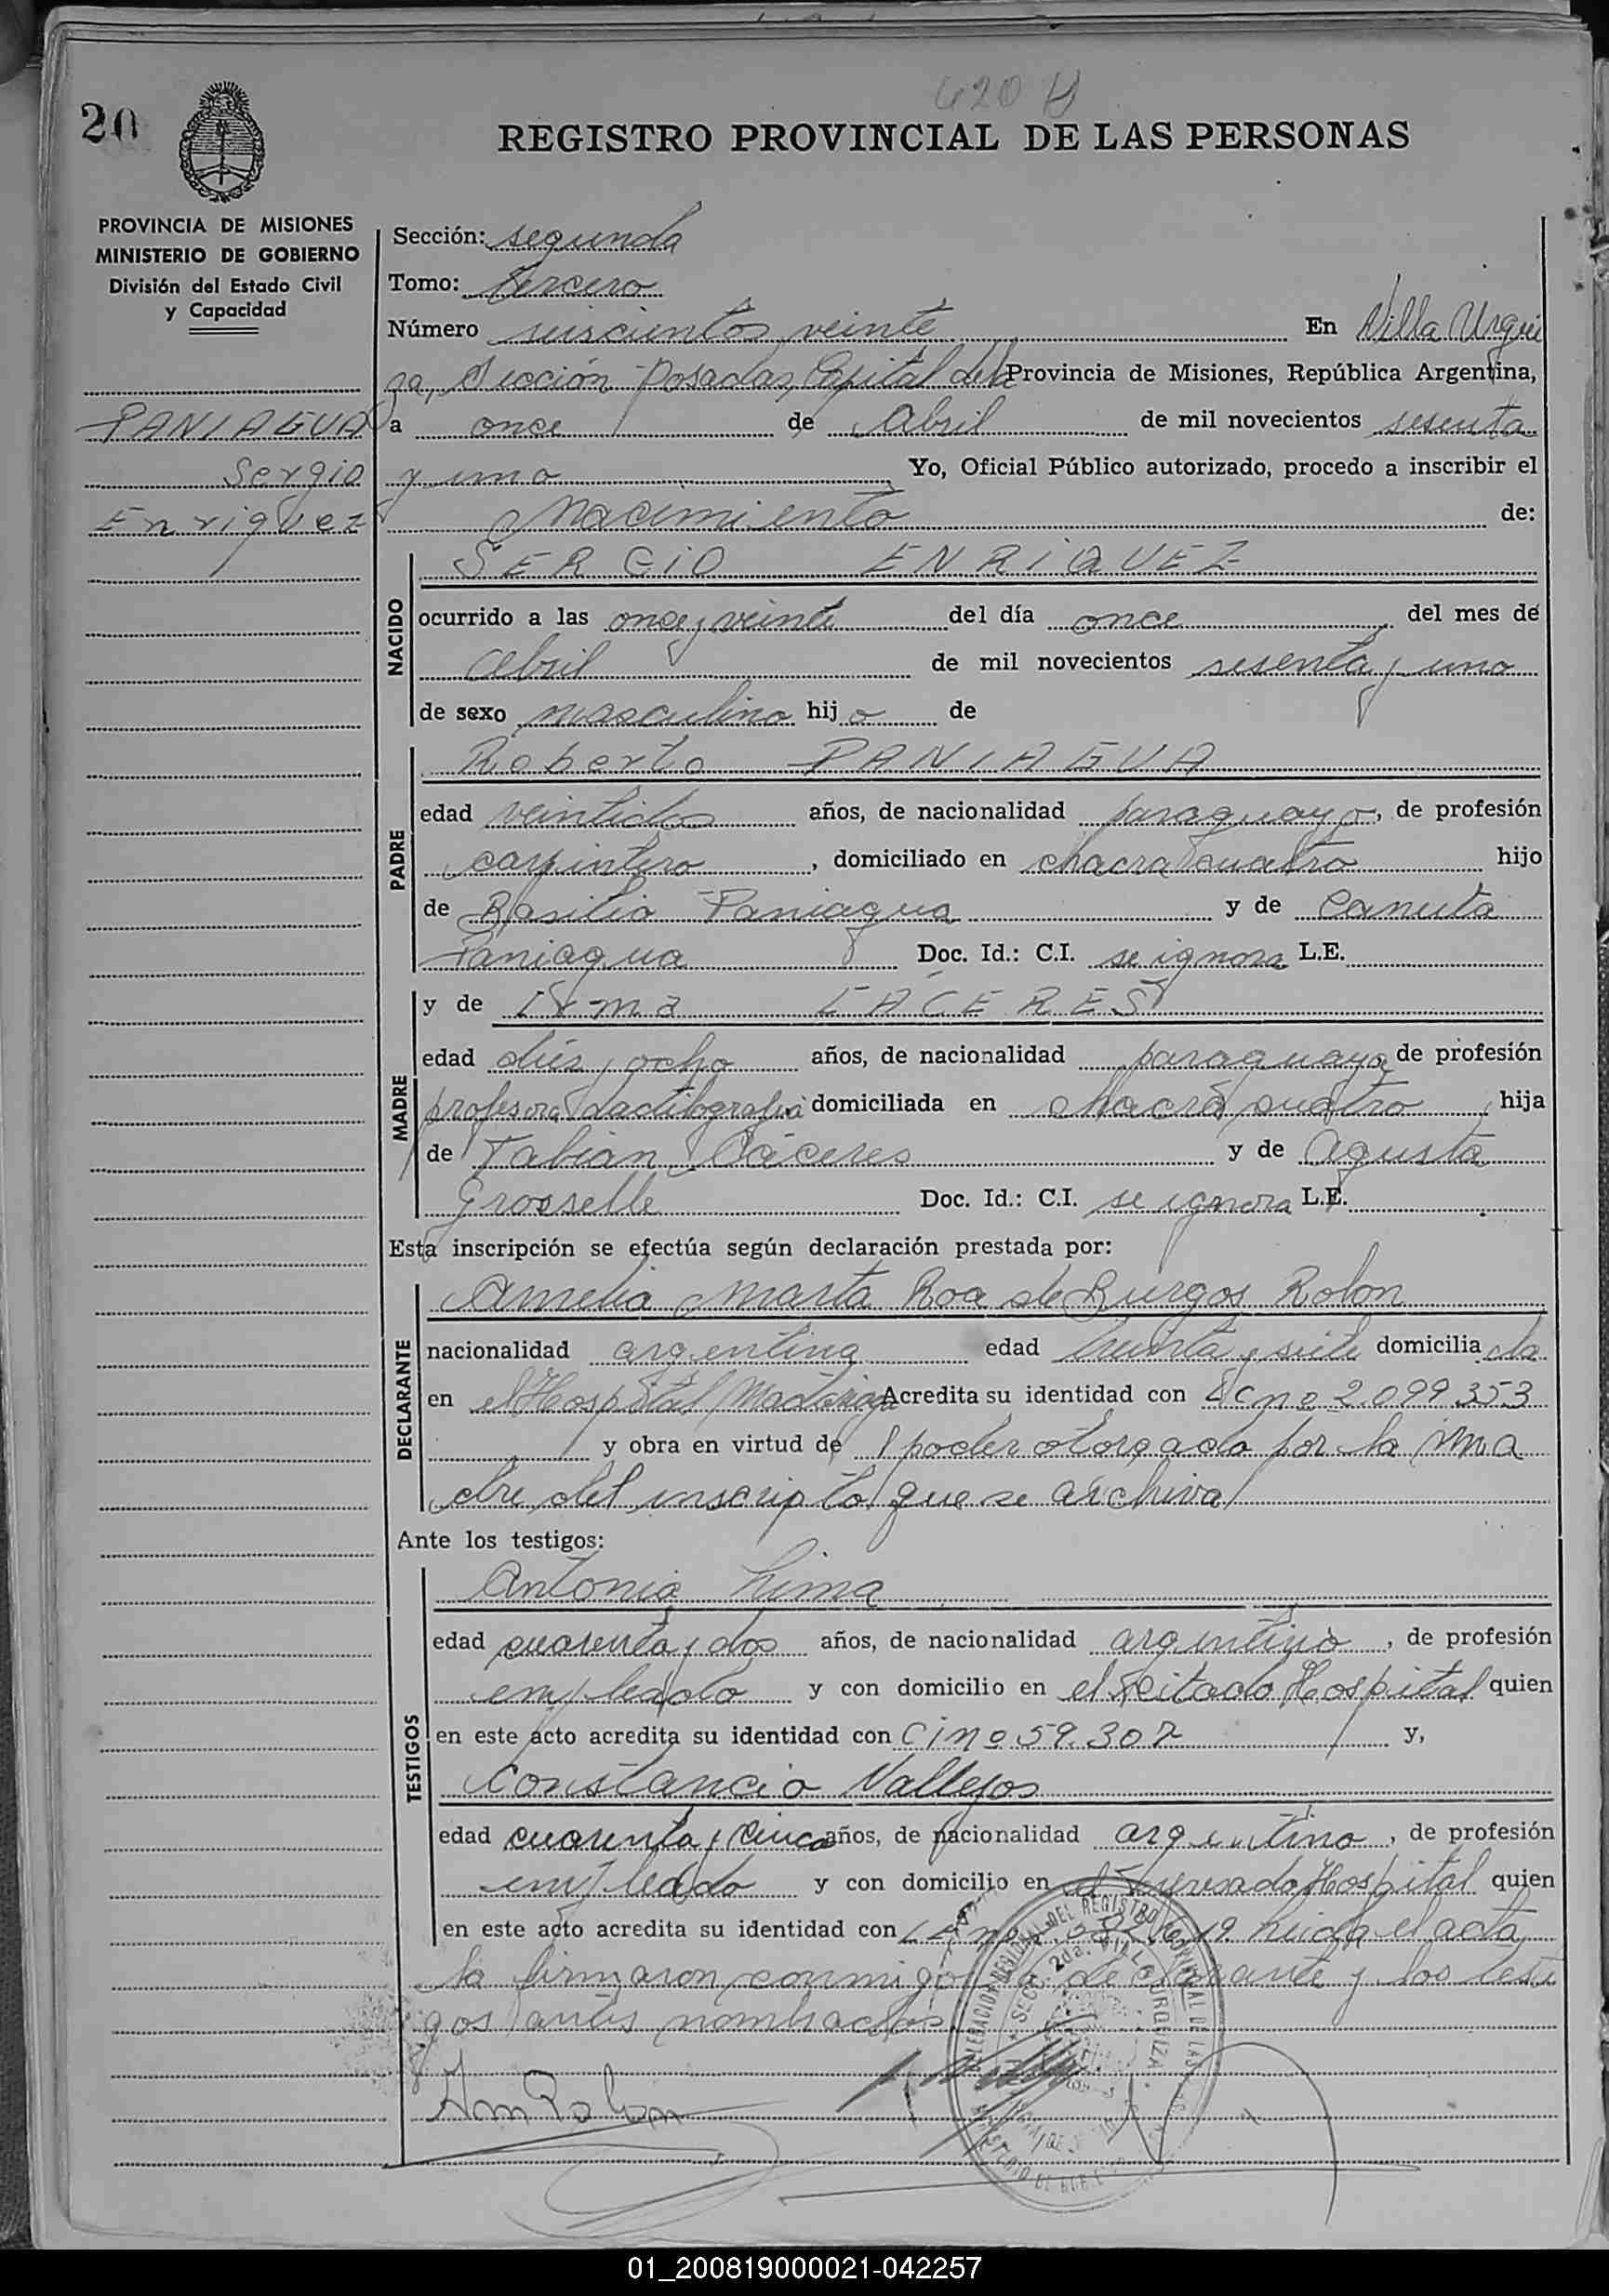 20
620
REGISTRO PROVINCIAL DE LAS PERSONAS
PROVINCIA DE MISIONES
MINISTERIO DE GOBIERNO
División del Estado Civil
y Capacidad
PANIAGUA
Sergio
Enriquez
Sección: segunda
Tomo: tercero
Número seiscientos veinte En Villa Urqui
za, Sección Posadas, Capital de la Provincia de Misiones, República Argentina,
a once de Abril de mil novecientos sesenta
y uno Yo, Oficial Público autorizado, procedo a inscribir el
Nacimiento de:
NACIDO
SERGIO ENRIQUEZ
ocurrido a las once y veinte del día once del mes de
Abril de mil novecientos sesenta y uno
de sexo masculino hijo de
PADRE
Roberto PANIAGUA
edad veintidos años, de nacionalidad paraguayo, de profesión
carpintero, domiciliado en chacra cuatro hijo
de Basilio Paniagua y de Canuta
Paniagua Doc. Id.: C.I. se ignora L.E.
MADRE
y de Irma CÁCERES
edad dies y ocho años, de nacionalidad paraguaya de profesión
profesora dactilografia domiciliada en chacra cuatro, hija
de Fabian Cáceres y de Agusta
Grosselle Doc. Id.: C.I. se ignora L.E.
Esta inscripción se efectúa según declaración prestada por:
DECLARANTE
Amelia Marta Roa de Burgos Rolon
nacionalidad argentina edad treinta y siete domiciliada
en el Hospital Madariaga Acredita su identidad con LC nº 2.099.353
y obra en virtud de poder otorgado por la ma
dre del inscripto que se archiva
Ante los testigos:
TESTIGOS
Antonio Lima
edad cuarenta y dos años, de nacionalidad argentino, de profesión
empleado y con domicilio en el citado Hospital quien
en este acto acredita su identidad con Ci nº 59.307 y,
Constancio Vallejos
edad cuarenta y cinco años, de nacionalidad argentino, de profesión
empleado y con domicilio en el Hospital quien
en este acto acredita su identidad con leida el acta
la firmaron conmigo la declarante y los testi
gos antes nombrados
Am Rolon
SECC. 2da. VILLA URQUIZA
01_200819000021-042257